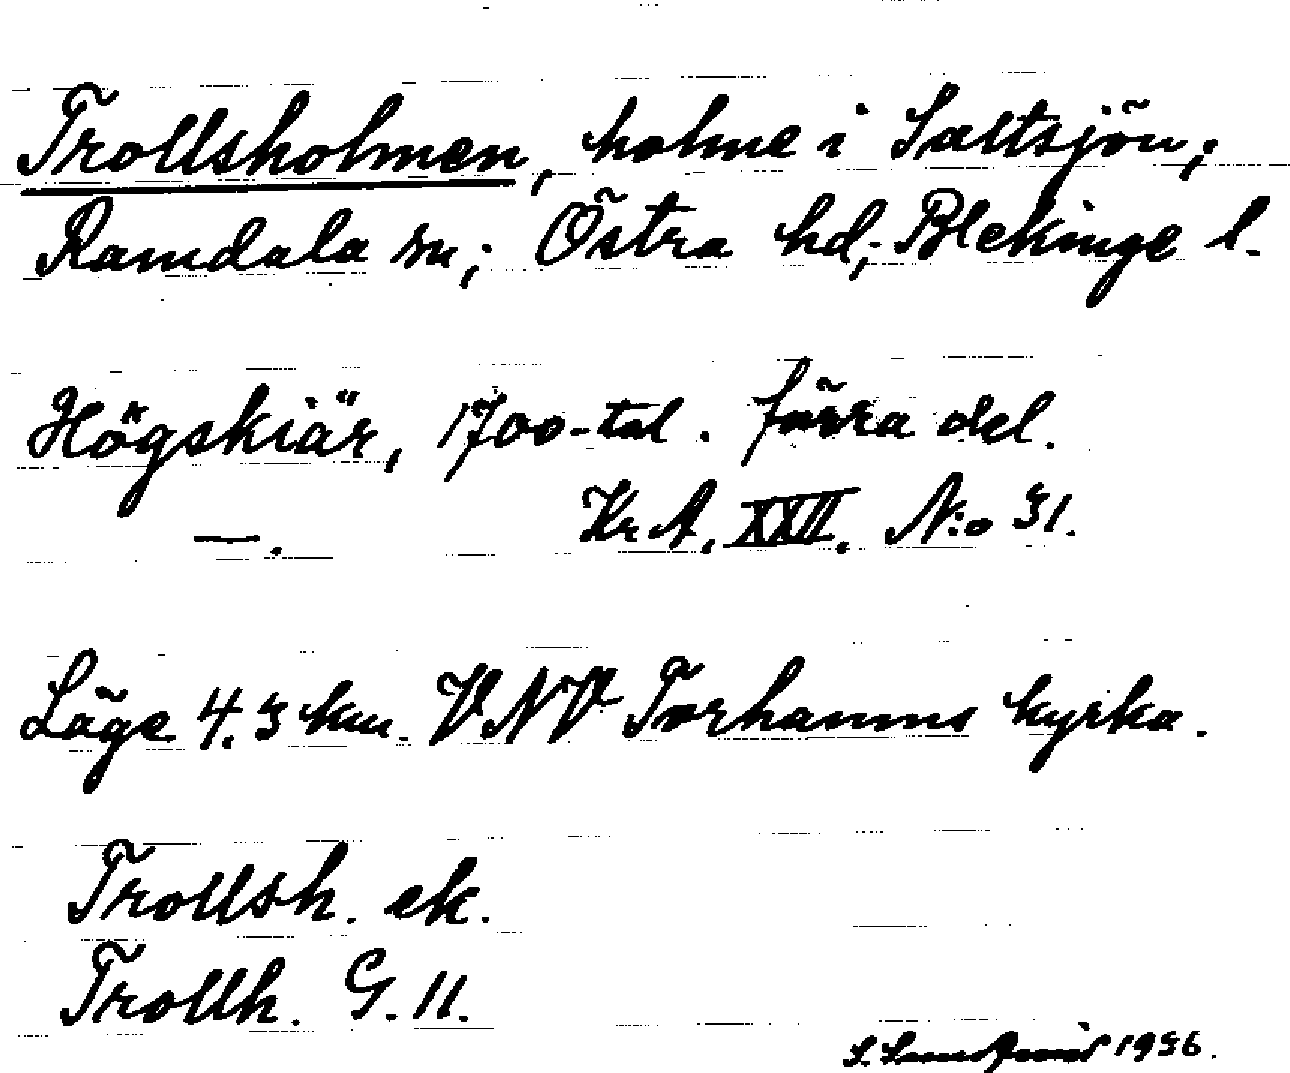 Trollsholmen, holme i Saltsjön;
Ramdala sn; Östra hd; Blekinge l.
Högskiär, 1700-tal. förra del.
—. Kr A. XXII. N:o 31.
Läge 4.3 km. VNV Torhamns kyrka.
Trollsh. ek.
Trollh. G. 11.
S. 1956.